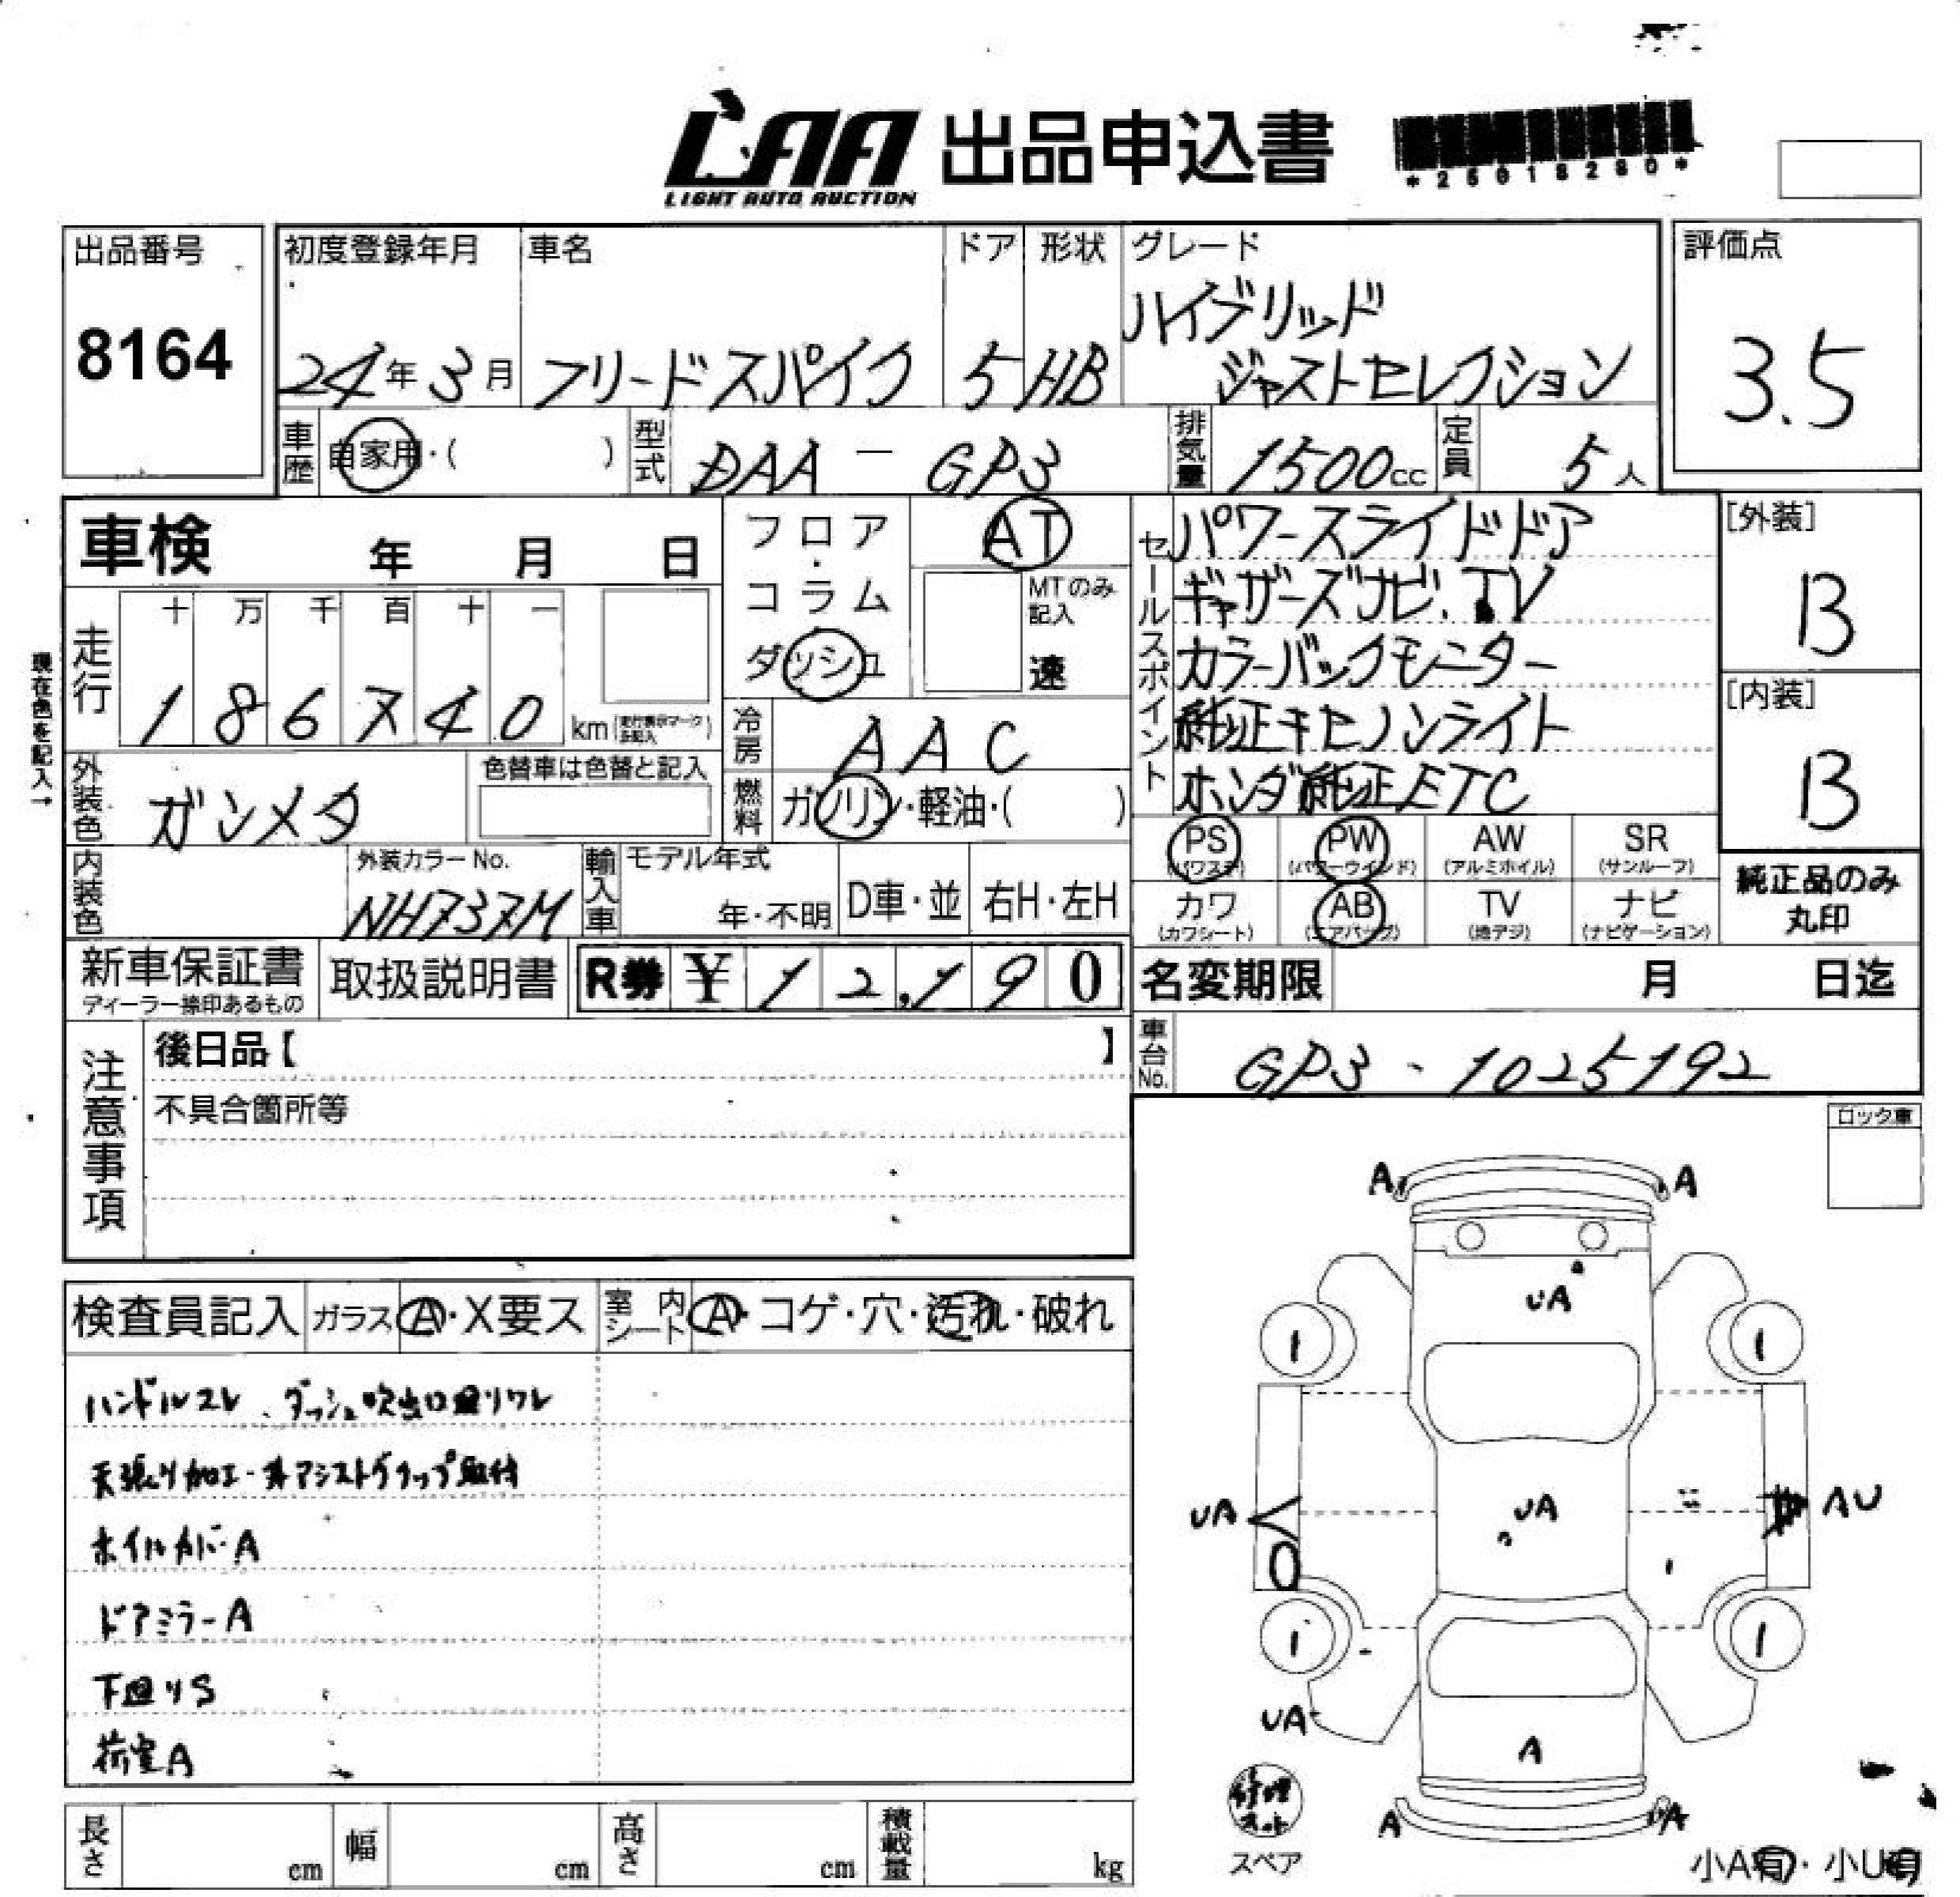 LAA 出品申込書
LIGHT AUTO AUCTION
*25018280*
出品番号
8164
初度登録年月
24年3月
車名
フリードスパイク
ドア
5
形状
HB
グレード
ハイブリッド
ジャストセレクション
評価点
3.5
車歴
自家用・( )
型式
DAA－GP3
排気量
1500cc
定員
5人
車検 年 月 日
フロア・コラム
ダッシュ
AT
MTのみ記入
速
セールスポイント
パワースライドドア
ギャザーズナビ.TV
カラーバックモニター
純正キセノンライト
ホンダ純正ETC
[外装]
B
[内装]
B
現在色を記入→
走行
十 万 千 百 十 一
1 8 6 7 4 0 km
冷房
AAC
外装色
ガンメタ
色替車は色替と記入
燃料
ガソリン・軽油・( )
PS (パワステ)
PW (パワーウインド)
AW (アルミホイル)
SR (サンルーフ)
カワ (カワシート)
AB (エアバッグ)
TV (地デジ)
ナビ (ナビゲーション)
純正品のみ
丸印
内装色
外装カラーNo.
NH737M
輸入車
モデル年式
年・不明
D車・並
右H・左H
新車保証書
ディーラー捺印あるもの
取扱説明書
R券 ¥12,190
名変期限 月 日迄
車台No.
GP3-1025192
注意事項
後日品【 】
不具合箇所等
ロッタ車
検査員記入
ガラス A・X要ス
室内シート A・コゲ・穴・汚れ・破れ
ハンドルスレ、ダッシュ吹出口廻りワレ
天張り加工・井アシストグリップ取付
ホイルカバーA
ドアミラーA
下廻りS
荷室A
A A
UA
1 1
UA UA AU
1 1
UA
A
A A
修理キット
スペア
小A有・小U有
長さ cm
幅 cm
高さ cm
積載量 kg